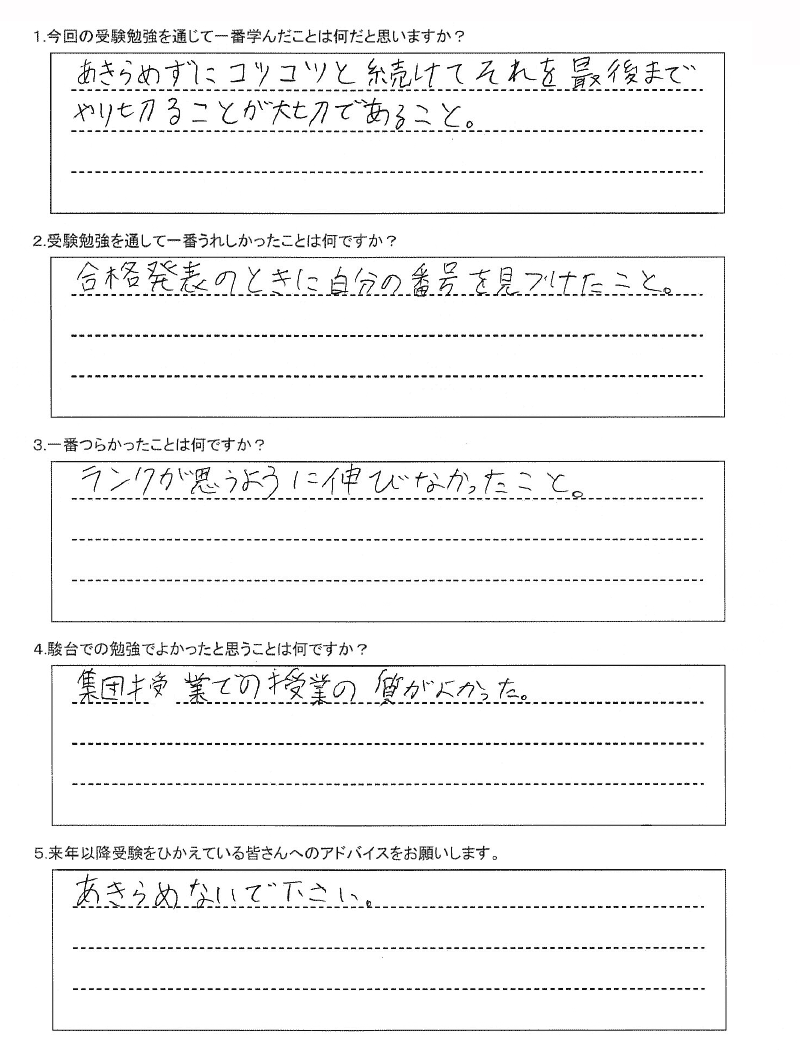 1.今回の受験勉強を通じて一番学んだことは何だと思いますか？
あきらめずにコツコツと続けてそれを最後まで
やり切ることが大切であること。
2.受験勉強を通して一番うれしかったことは何ですか？
合格発表のときに自分の番号を見つけたこと。
3.一番つらかったことは何ですか？
ランクが思うように伸びなかったこと。
4.駿台での勉強でよかったと思うことは何ですか？
集団授業での授業の質がよかった。
5.来年以降受験をひかえている皆さんへのアドバイスをお願いします。
あきらめないで下さい。